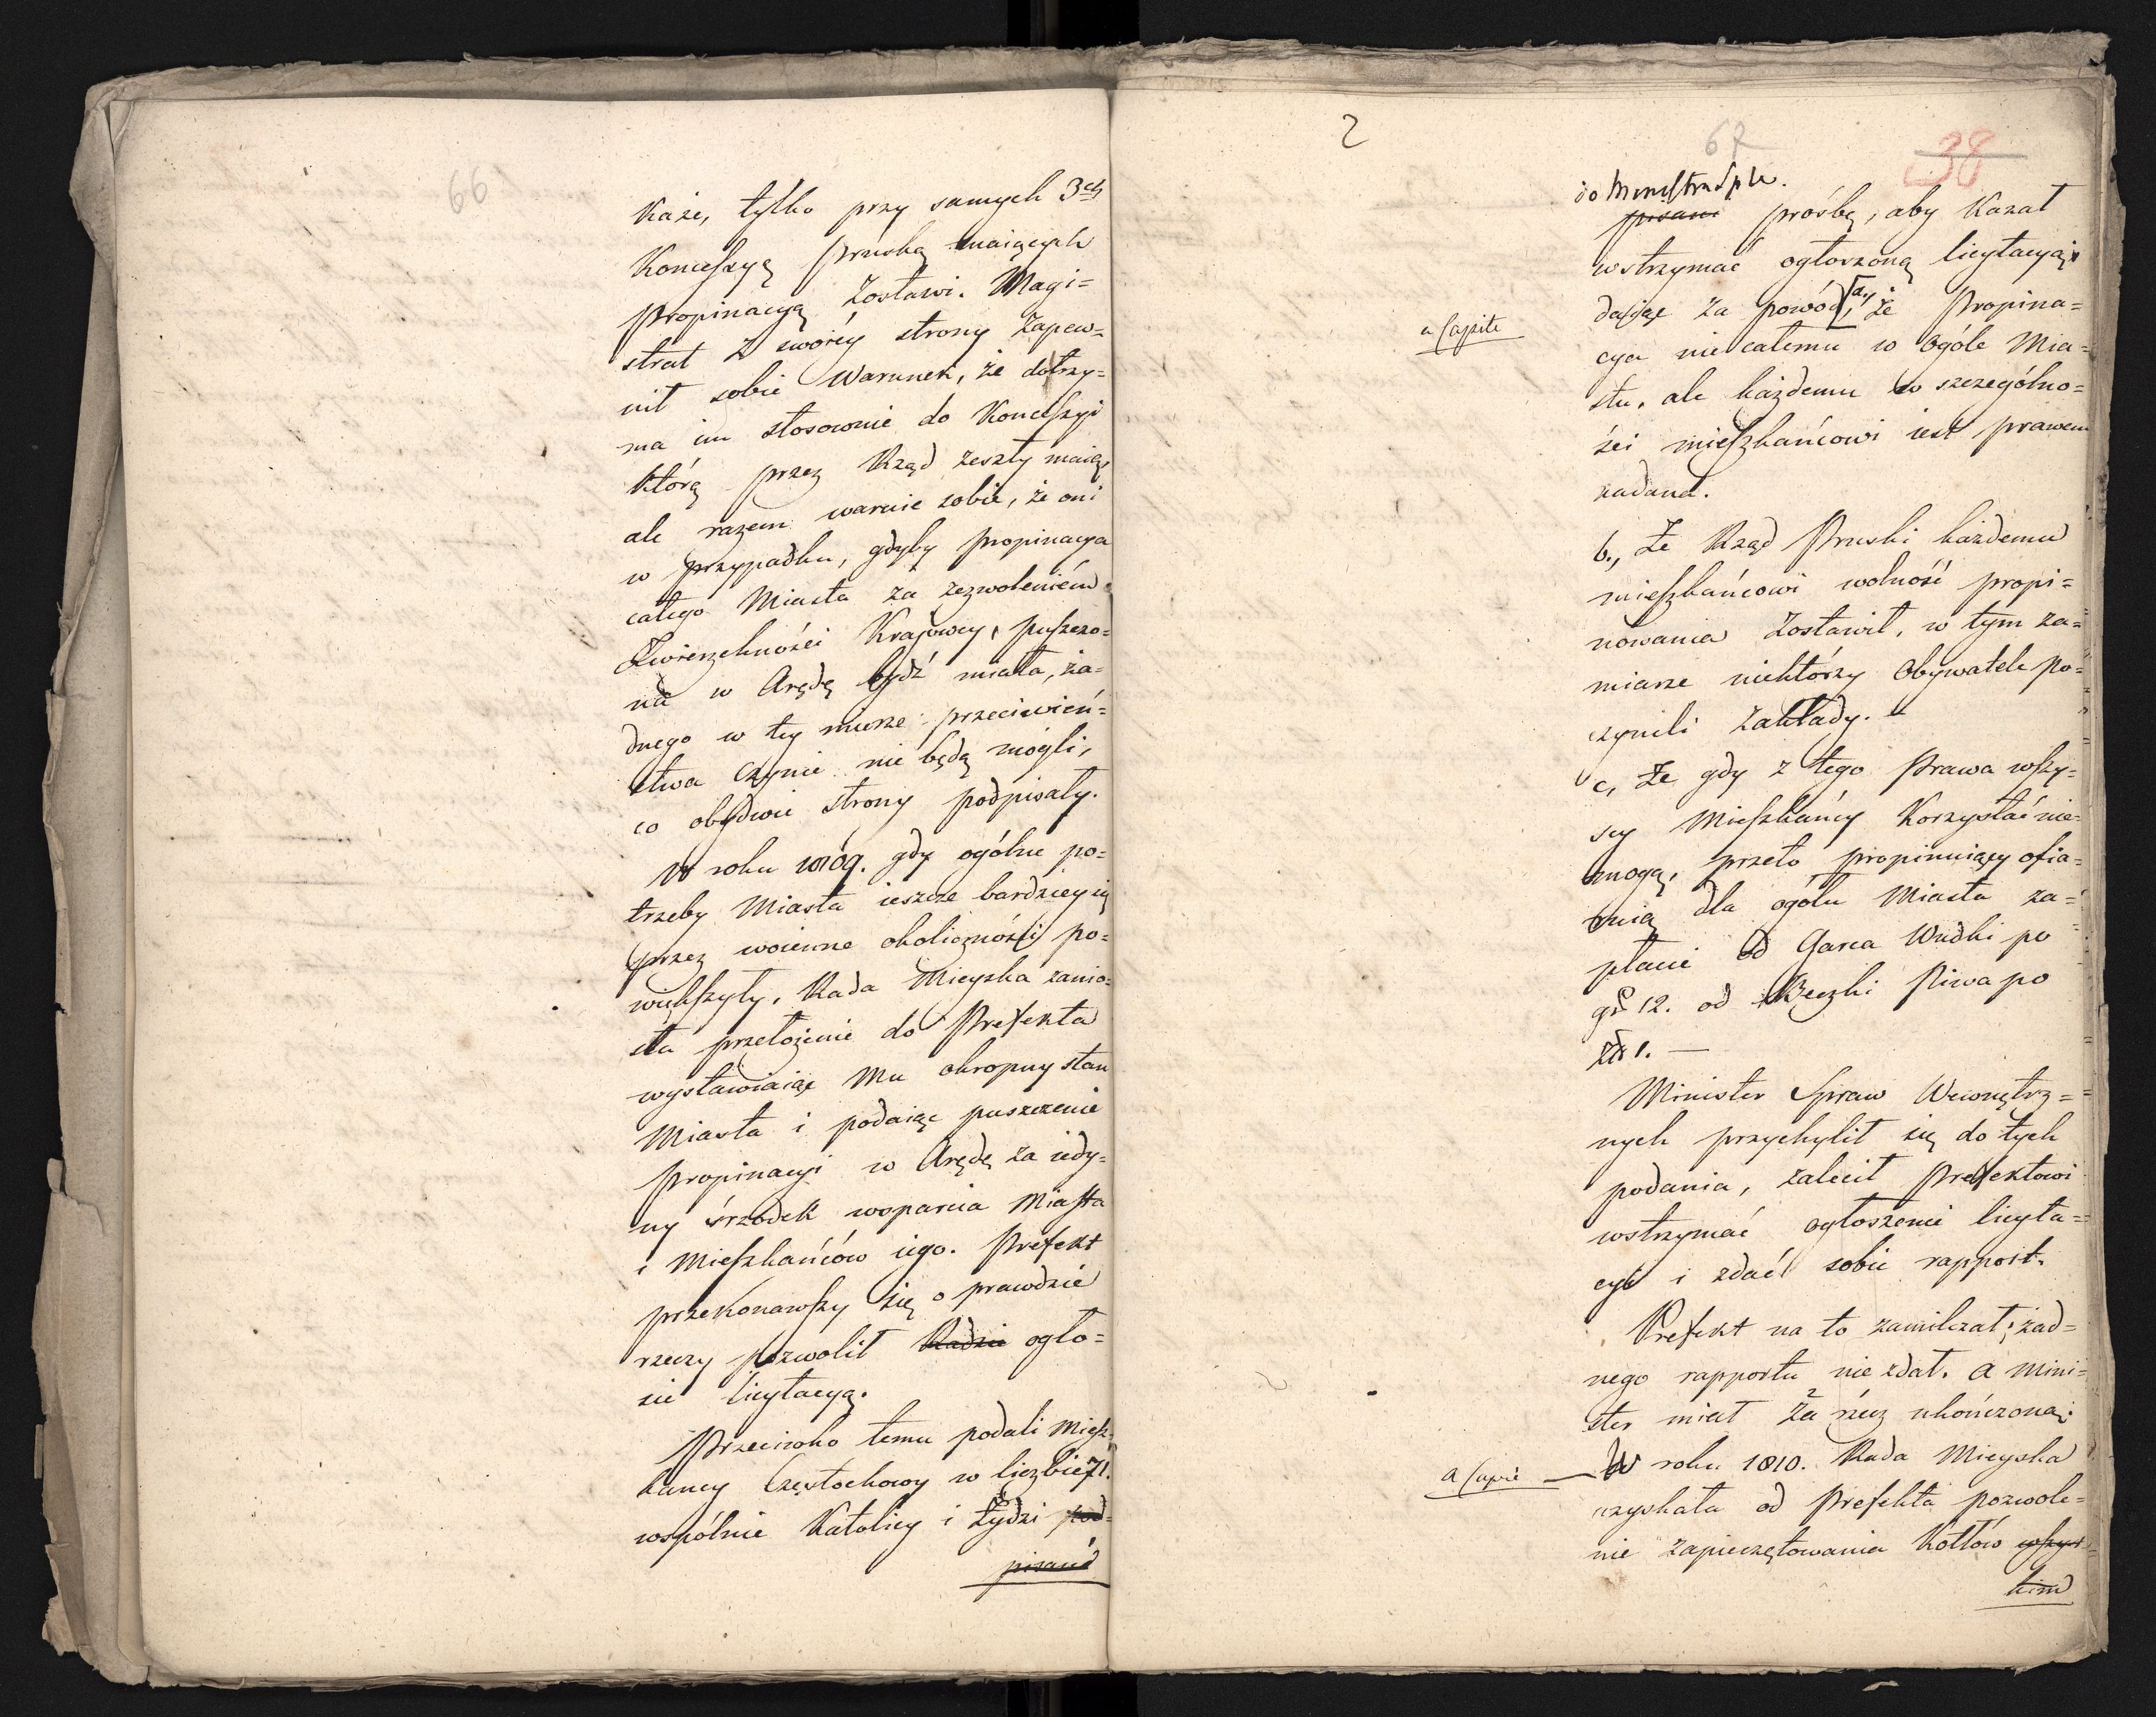 66
każe, tylko przy samych 3ch
Koncessyą Pruską maiących
Propinacyą zostawi. Magi=
strat z swoiéy strony zapew=
nił sobie Warunek, że dotrzy=
ma im stosownie do Koncessyi
którą przez Rząd zeszły maią,
ale razem waruie sobie, że oni
w przypadku, gdyby propinacya
całego Miasta za zezwoleniem
Zwierzchności Krajowey, puszczo=
na w Arędę bydź miała, ża=
dnego w tey mierze przeciwień=
stwa czynić nie będą mogli,
co obydwie strony podpisały.
W roku 1809. gdy ogólne po=
trzeby Miasta ieszcze bardziey się
przez woienne okoliczności po=
większyły, Rada Mieyska zanio=
sła przełożenie do Prefekta
wystawiaiąc Mu okropny stan
Miasta i podaiąc puszczenie
propinacyi w Arędę za iedy=
ny śrzodek wsparcia Miasta
i Mieszkańców iego. Prefekt
przekonawszy się o prawdzie
rzeczy pozwolił Radzie ogło=
sić licytacyą.
Przeciwko temu podali Miesz=
kańcy Częstochowy w liczbie 71.
wspólnie Katolicy i Żydzi pod=
pisani
2
67
38
do Ministra Spr. W.
pisani prośbę, aby kazał
wstrzymać ogłoszoną licytacyą,
daiąc za powód, a, że Propina=
a Capite
cya nie całemu w ogóle Mia=
stu, ale każdemu w szczególno=
ści mieszkańcowi iest prawem
nadana.
b., Że Rząd Pruski każdemu
mieszkańcowi wolność propi=
nowania zostawił, w tym za=
miarze niektórzy Obywatele po=
czynili zakłady.
c, Że gdy z tego Prawa wszy=
scy Mieszkańcy korzystać nie=
mogą, przeto propinuiący ofia=
ruią dla ogółu Miasta za=
płacić od Garca Wódki po
gr 12. od Beczki Piwa po
Złt 1. —
Minister Spraw Wewnętrz=
nych przychylił się do tych
podania, zalecił Prefektowi
wstrzymać ogłoszenie licyta=
cyi i zdać sobie rapport.
Prefekt na to zamilczał; żad=
nego rapportu nie zdał. a Mini=
ster miał za rzecz ukończoną.
a Capite — W roku 1810. Rada Mieyska
uzyskała od Prefekta pozwole=
nie zapieczętowania Kotłów wszyst=
kim